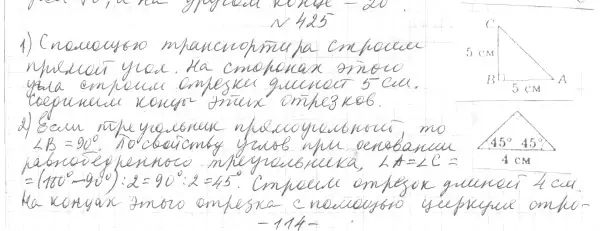 - 20
№ 425
1) С помощью транспортира строим
прямой угол. На сторонах этого
угла строим отрезки длиной 5 см.
Соединим концы этих отрезков.
C
5 см
B
A
5 см
2) Если треугольник прямоугольный, то
∠B = 90°. По свойству углов при основании
равнобедренного треугольника, ∠A = ∠C =
= (180° - 90°) : 2 = 90° : 2 = 45°. Строим отрезок длиной 4 см.
На концах этого отрезка с помощью циркуля отро-
45° 45°
4 см
- 114 -